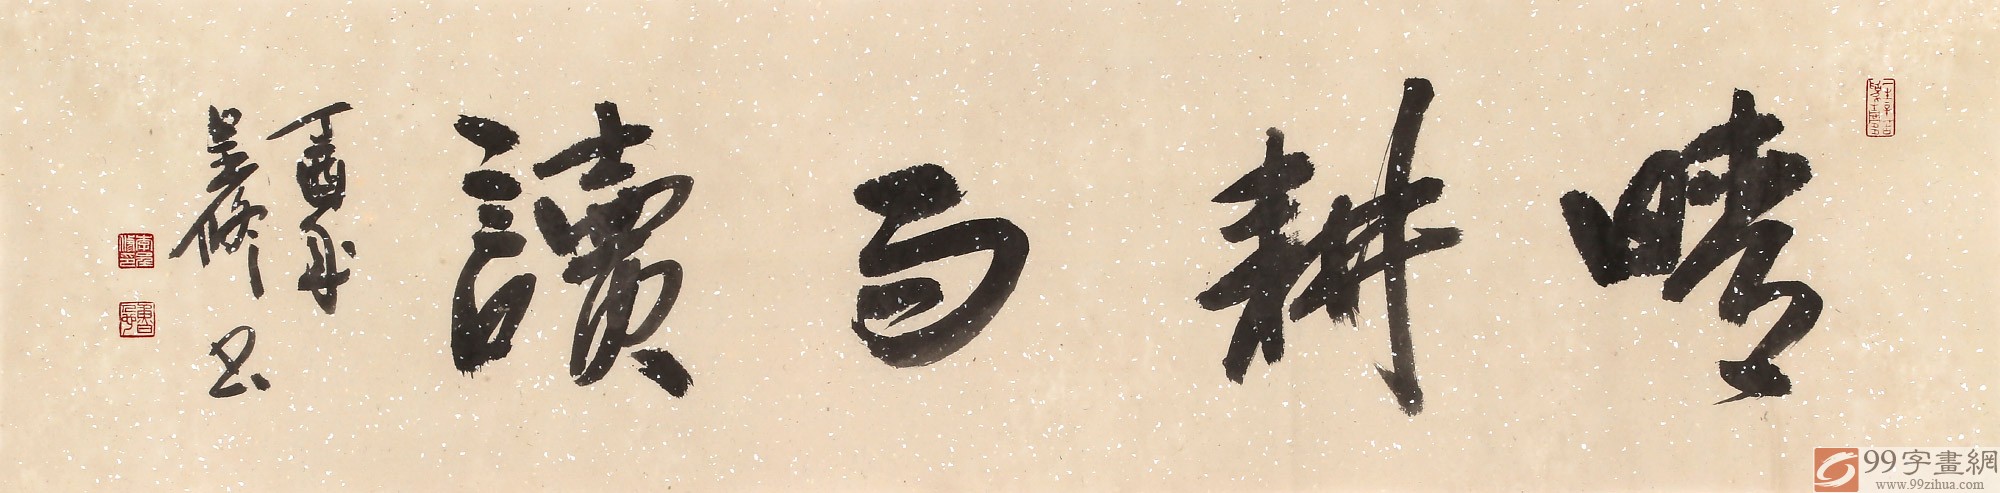 晴耕雨讀
丁酉年
書
99字畫網
www.99zihua.com